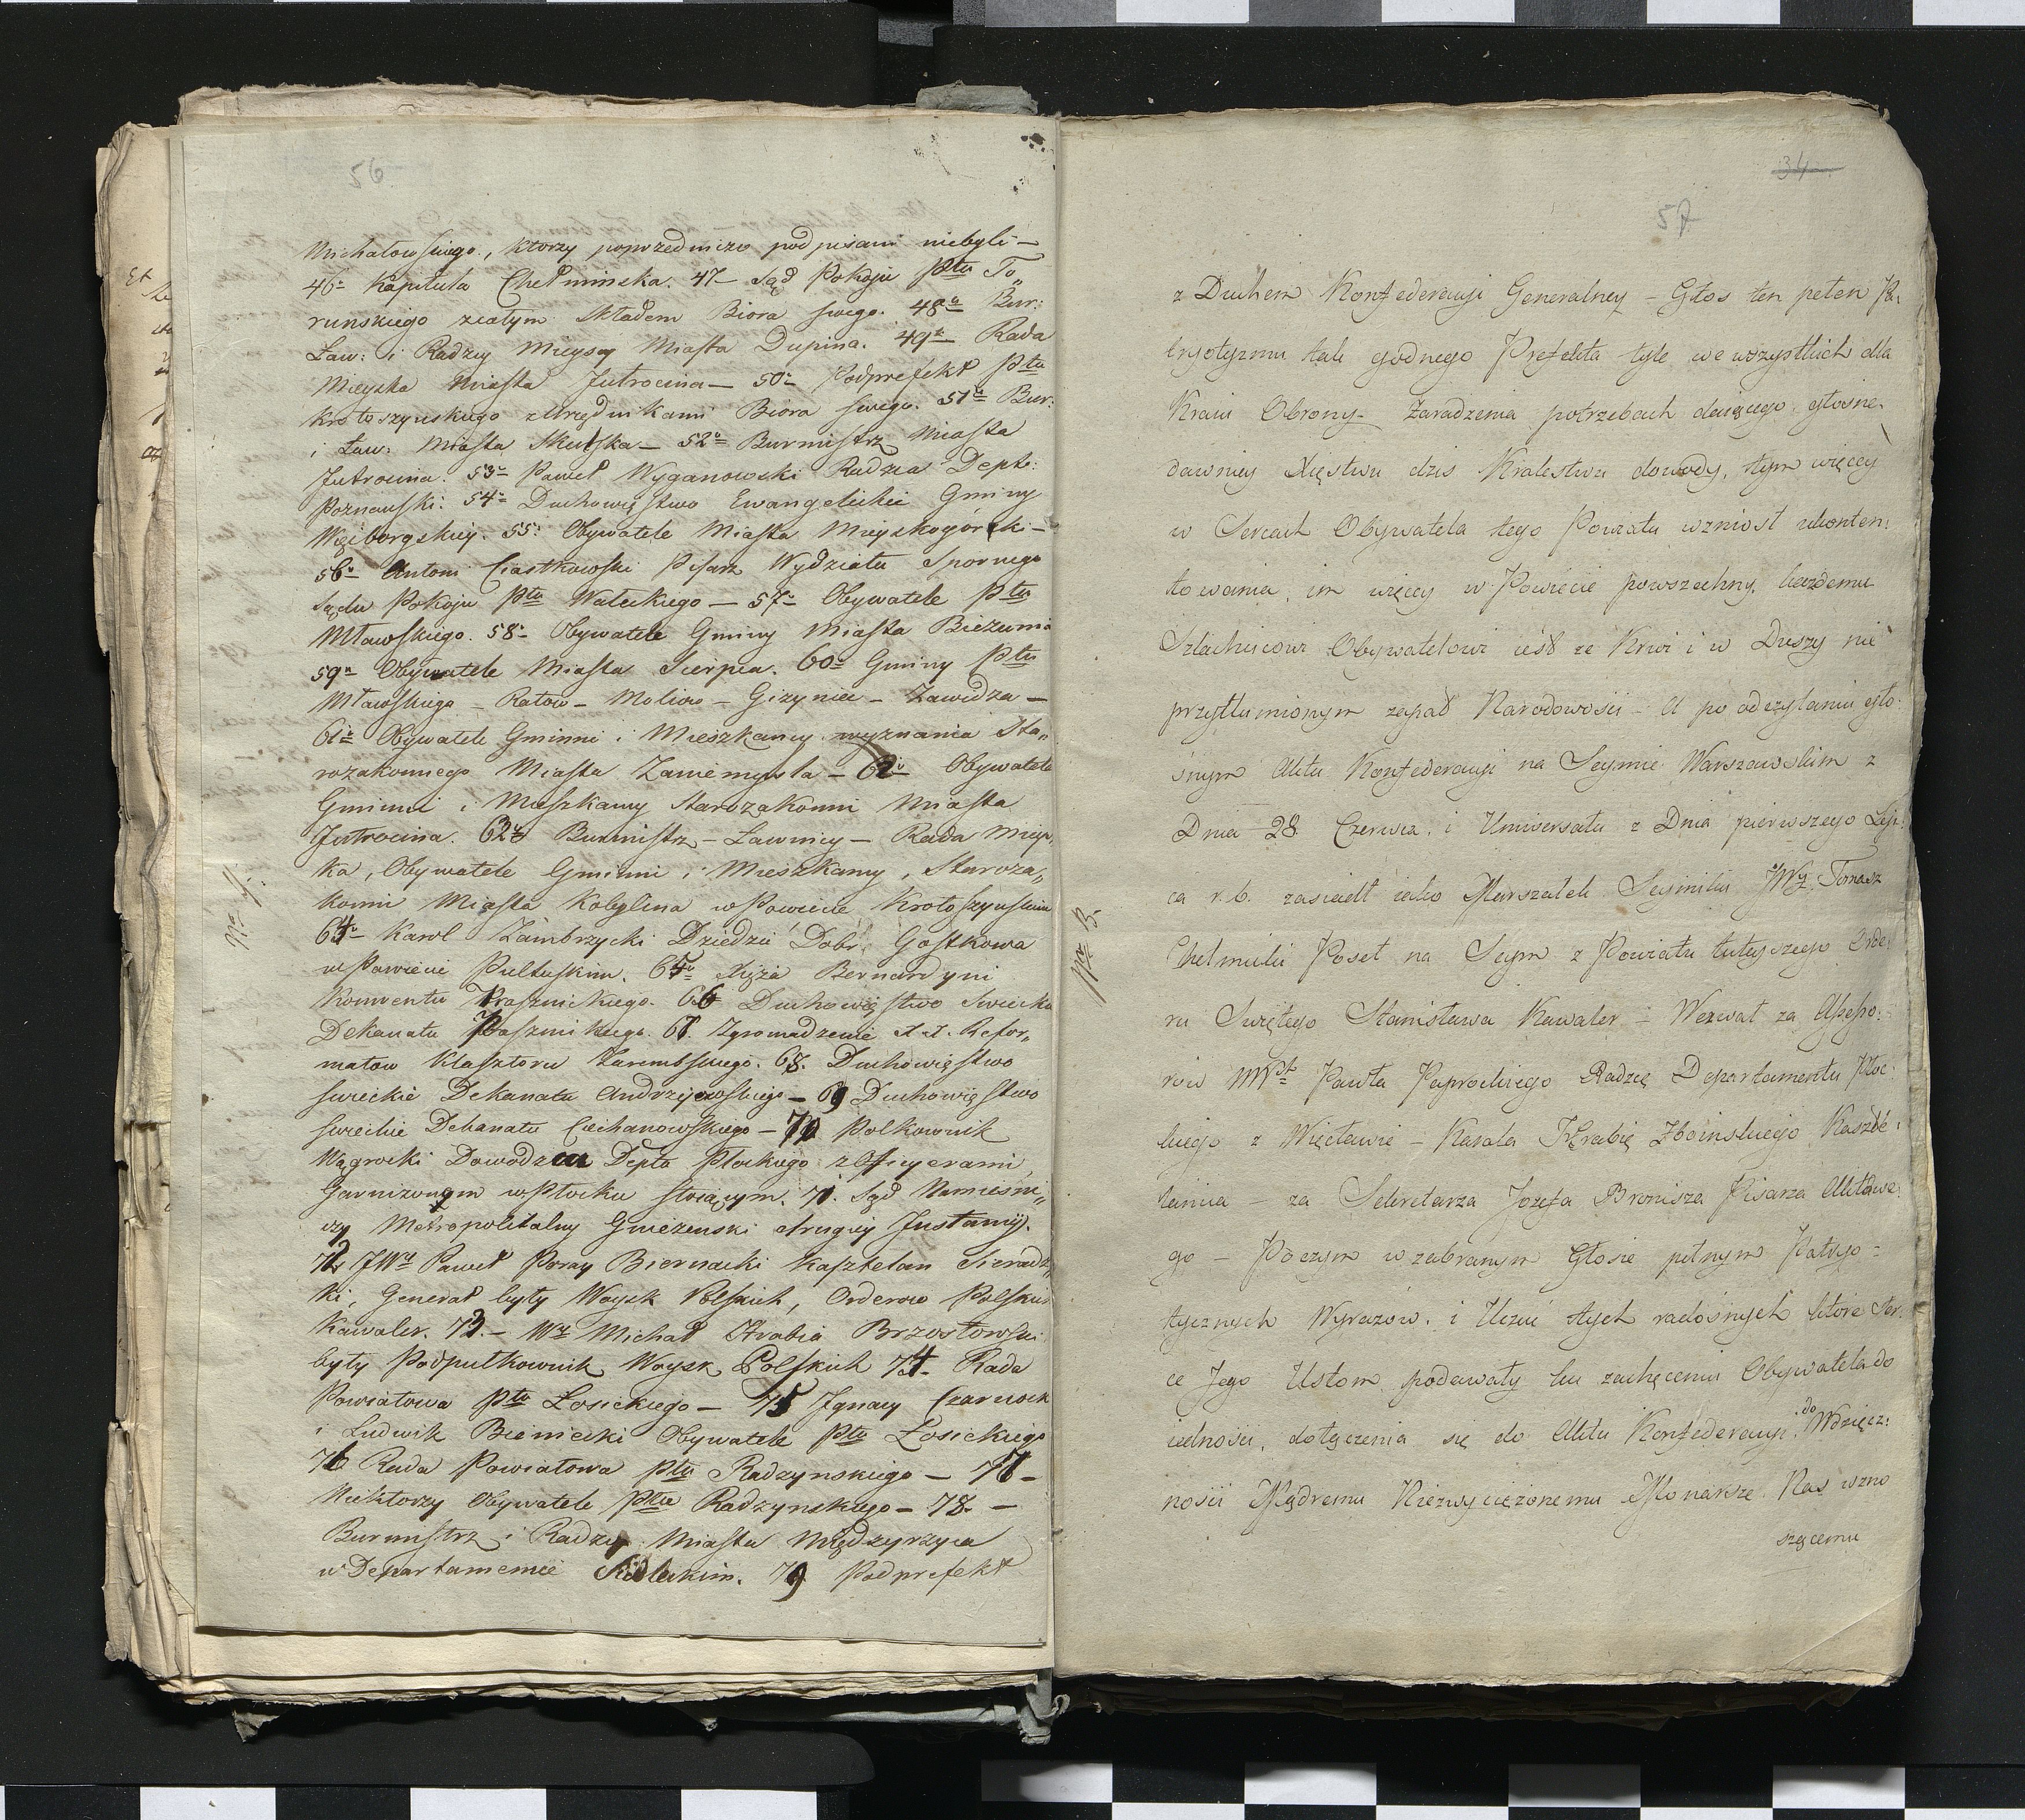 56
Michałowskiego, ktorzy poprzedniczo podpisani niebyli —
46º Kapituła Chełminska. 47º Sąd Pokoju Ptu To„
runskiego zcałym Składem Biora swego. 48º Bur:
Ław: i Radzcy Mieyscy Miasta Dupina. 49º Rada
Mieyska Miasta Jutrocina — 50º Podprefekt Ptu
Krotoszynskiego zUrzędnikami Biora swego. 51º Bur:
i Ław: Miasta Skulska — 52º Burmistrz Miasta
Jutrocina. 53º Paweł Wyganowski Radzca Depto:
Poznanski: 54º Duchowięstwo Ewangelickie Gminy
55º Obywatele Miasta Mieyskogórki —
56º Antoni Ciastkowski Pisarz Wydziału Spornego
Sądu Pokoju Ptu Wałeckiego — 57º Obywatele Ptu
Mławskiego. 58º Obywatele Gminy Miasta Bieżunia
59º Obywatele Miasta Sierpca. 60º Gminy Ptu
Mławskiego — Ratow — Gizynie — Zawidza —
61º Obywatele Gminni i Mieszkancy wyznania Sta„
rozakonnego Miasta Zaniemysla — 62º Obywatele
Gminni i Mieszkancy Starozakonni Miasta
Jutrocina. 63º Burmistrz — Ławnicy — Rada Mieys
ka, Obywatele Gminni i Mieszkancy, Staroza„
konni Miasta Kobylina wPowiecie Krotoszynskim
64º Karol Zambrzycki Dziedzic Dobr Gostkowa
wPowiecie Pultuskim. 65º Xięża Bernardyni
Konwentu Prasznickiego. 66 Duchowięstwo Swieckie
Dekanatu Prasznickiego. 67. Zgromadzenie X.X. Refor„
matow Klasztoru Zarembskiego. 68. Duchowięstwo
swieckie Dekanatu Andrzejewskiego — 69 Duchowięstwo
swieckie Dekanatu Ciechanowskiego — 70 Półkownik
Wągrocki Dowodzca Depto Płockiego zOficyerami
Garnizonem wPłocku stoiącym. 71. Sąd Namiestni„
czy Metropolitalny Gnieznenski drugiey Jnstancyi.
72 JWny Paweł Poray Biernacki Kasztelan Sieradz„
ki, Generał były Woysk Polskich, Orderow Polskich
Kawaler. 73. — Wny Michał Hrabia Brzostowski
były Podpułkownik Woysk Polskich 74. Rada
Powiatowa Ptu Łosickiego — 75 Jgnacy Czarnock
i Ludwik Bieniecki Obywatele Ptu Łosickiego
76 Rada Powiatowa Ptu Radzynskiego — 77 —
Niektorzy Obywatele Pttu Radzynskiego — 78. —
Burmistrz i Radzcy Miasta Międzyrzyca
w Departamencie Siedleckim. 79 Podprefekt
34
57
z Duchem Konfederacyi Generalney — Głos ten pełen Pa
tryotyzmu tak godnego Prefekta tyle we wszystkich dla
Kraiu Obrony — Zaradzenia potrzebach daiącego głosne
dawniey Xięstwu dzis Krolestwu dowody, tym więcey
w Sercach Obywatela tego Powiatu wzniosł ukonten:
towania, im więcey w Powiecie powszechny, każdemu
Szlachcicowi Obywatelowi iest ze Krwi i w Duszy nie
przytłumionym zapał Narodowości — A po odczytaniu gło:
śnym Aktu Konfederacyi na Seymie Warszawskim z
Dnia 28 Czerwca, i Uniwersału z Dnia pierwszego Lip:
ca r. b. zasiadł iako Marszałek Seymiku Wy. Tomasz
Chełmicki Poseł na Seym z Powiatu tuteyszego Orde:
ru Swiętego Stanisława Kawaler — Wezwał za Assesso:
row Pawła Paprockiego Radzcę Departamentu Płoc:
kiego z Więcławic — Karola Hrabię Zboinskiego Kaszte:
lanica — za Sekretarza Jozefa Bronisza Pisarza Aktowe:
go — Poczym w zabranym Głosie pełnym Patryo=
tycznych Wyrazów, i Uczuć tych radośnych które Ser:
ce Jego Ustom podawały ku zachęceniu Obywatela do
iedności, dołączenia się do Aktu Konfederacyi, do Wdzięcz:
ności Mądremu Niezwyciężonemu Monarsze Nas wzno
szącemu